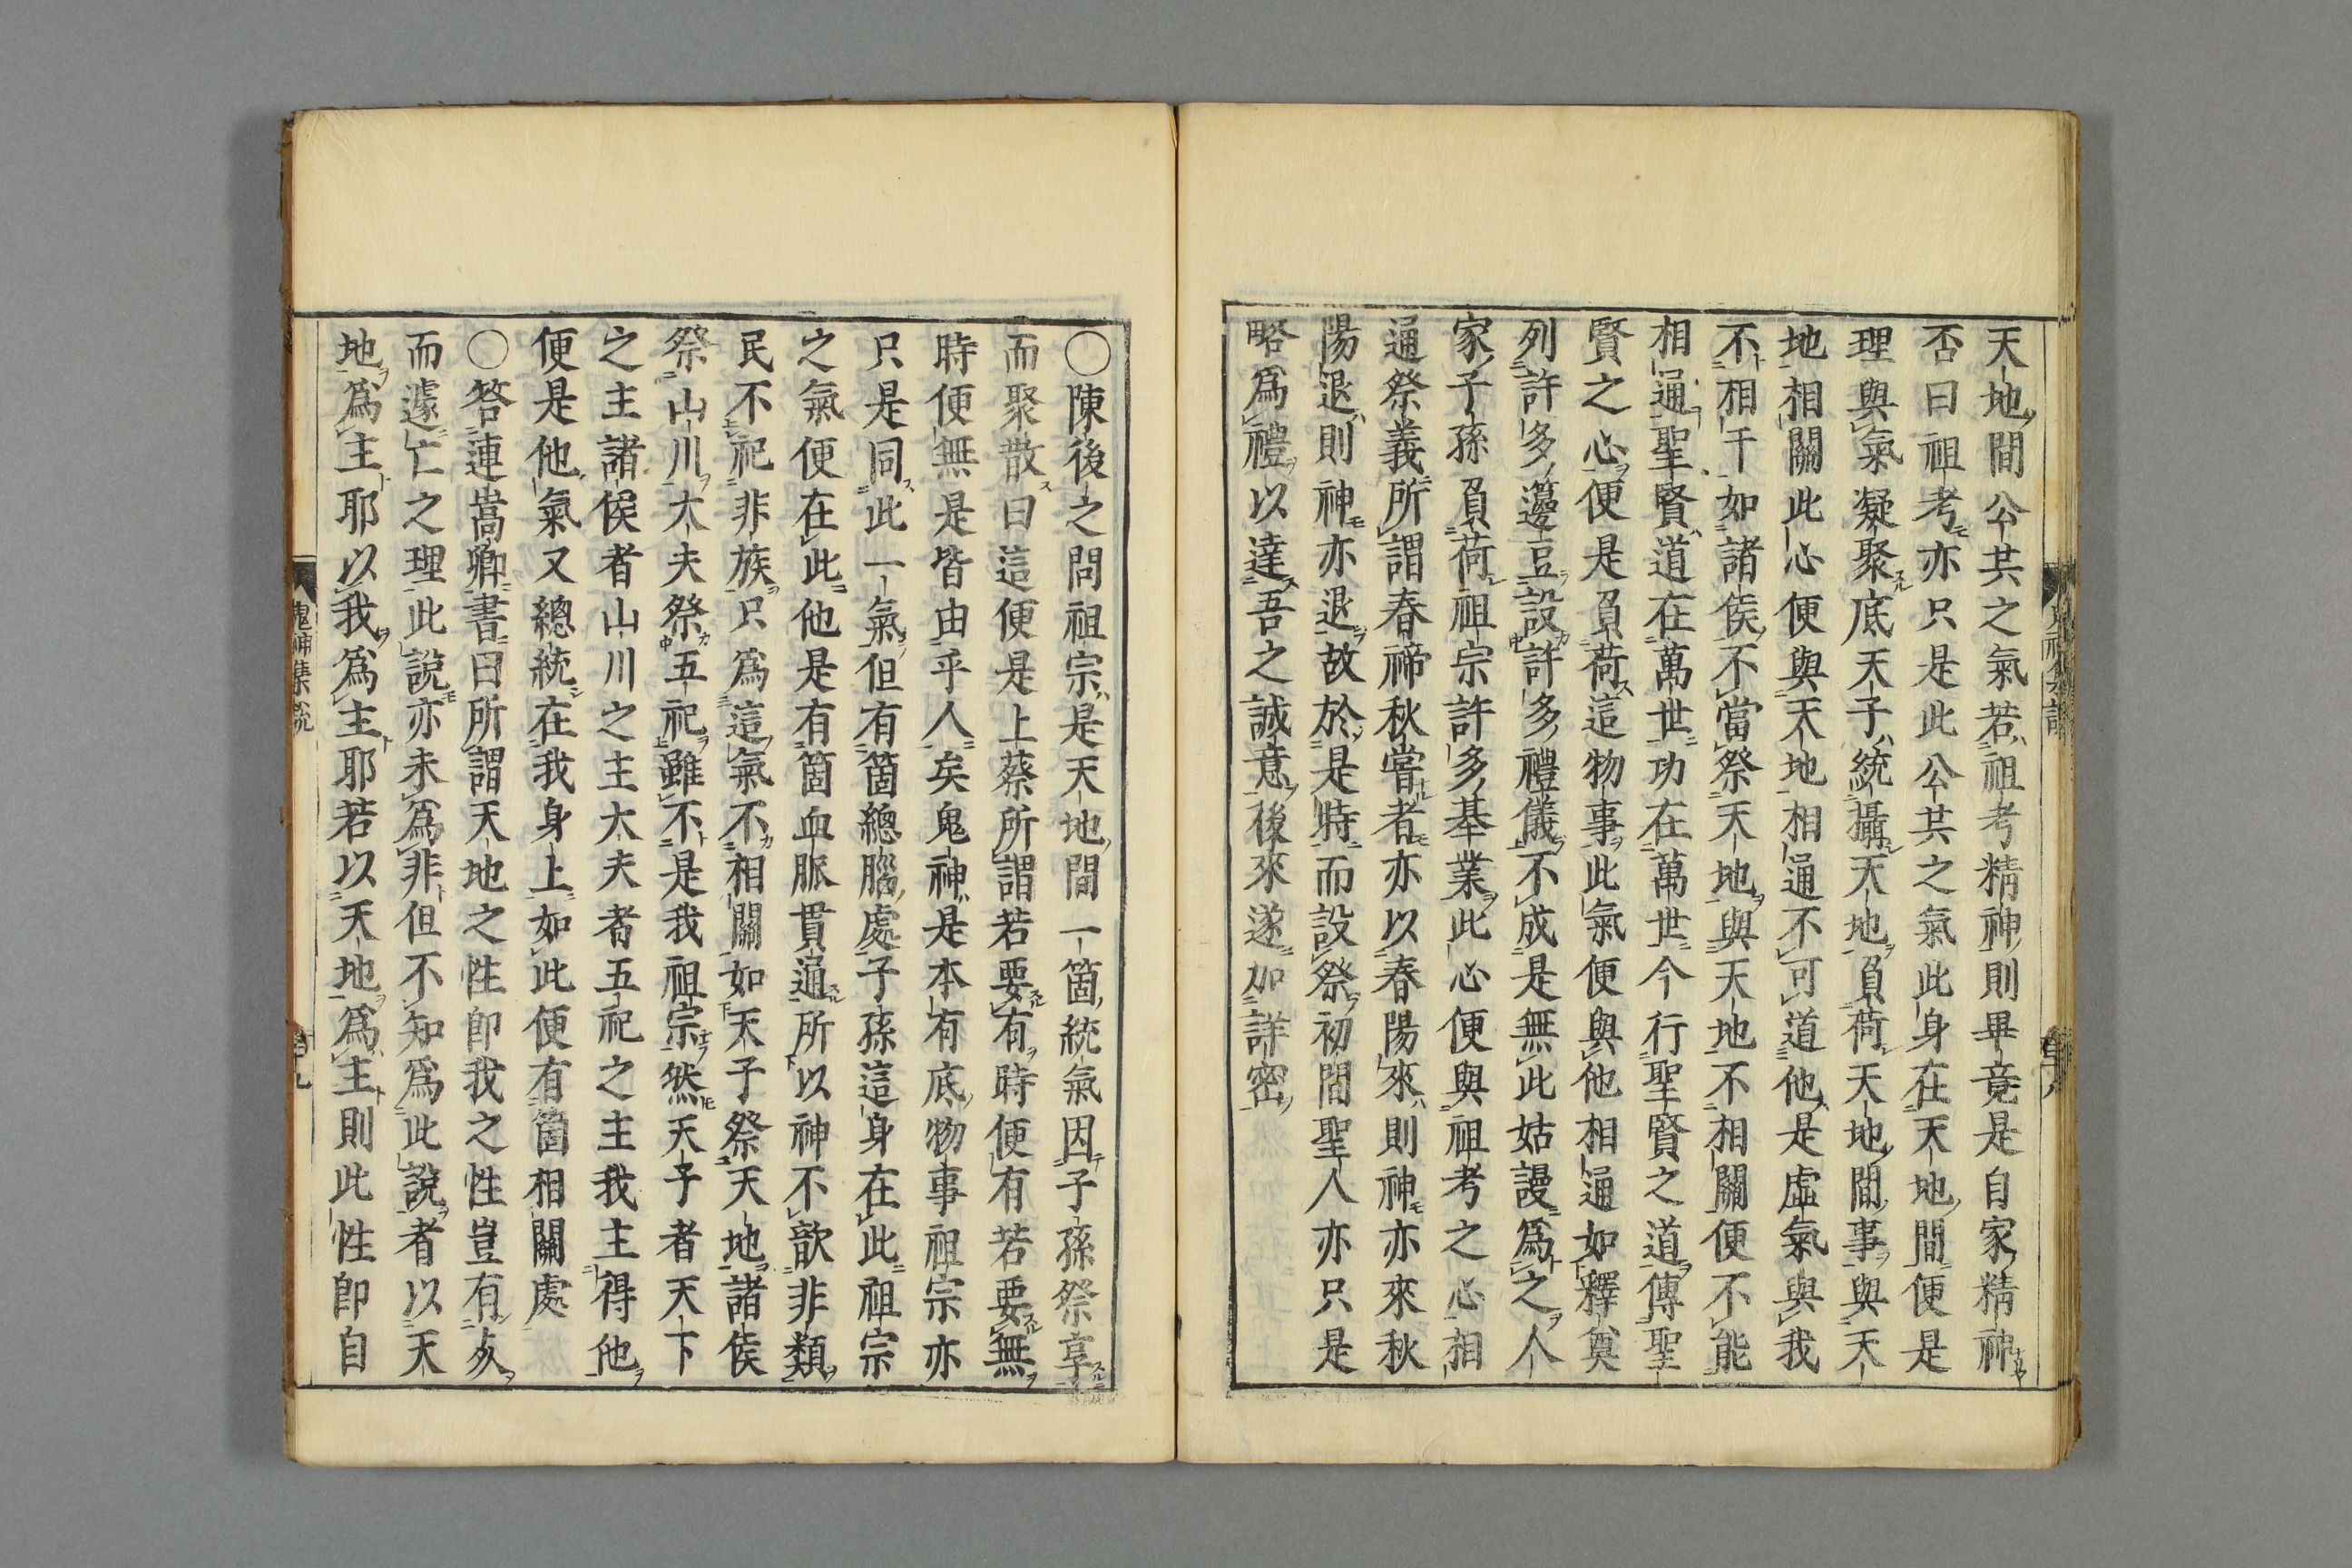 天地間公共之氣若祖考精神則畢竟是自家精神
否曰祖考亦只是此公共之氣此身在天地間便是
理與氣凝聚底天子統攝天地負荷天地間事與天
地相關此心便與天地相通不可道他是虛氣與我
不相干如諸侯不當祭天地與天地不相關便不能
相通聖賢道在萬世功在萬世今行聖賢之道傳聖
賢之心便是負荷這物事此氣便與他相通如釋奠
列許多籩豆設許多禮儀不成是無此姑謾爲之人
家子孫負荷祖宗許多基業此心便與祖考之心相
通祭義所謂春禘秋嘗者亦以春陽來則神亦來秋
陽退則神亦退故於是時而設祭初間聖人亦只是
略爲禮以達吾之誠意後來遂加詳密
〇陳後之問祖宗是天地間一箇統氣因子孫祭享
而聚散曰這便是上蔡所謂若要有時便有若要無
時便無是皆由乎人矣鬼神是本有底物事祖宗亦
只是同此一氣但有箇總腦處子孫這身在此祖宗
之氣便在此他是有箇血脈貫通所以神不歆非類
民不祀非族只爲這氣不相關如天子祭天地諸侯
祭山川大夫祭五祀雖不是我祖宗然天子者天下
之主諸侯者山川之主大夫者五祀之主我主得他
便是他氣又總統在我身上如此便有箇相關處
〇答連嵩卿書曰所謂天地之性即我之性豈有死
而遽亡之理此說亦未爲非但不知爲此說者以天
地爲主耶以我爲主耶若以天地爲主則此性即自
鬼神集說